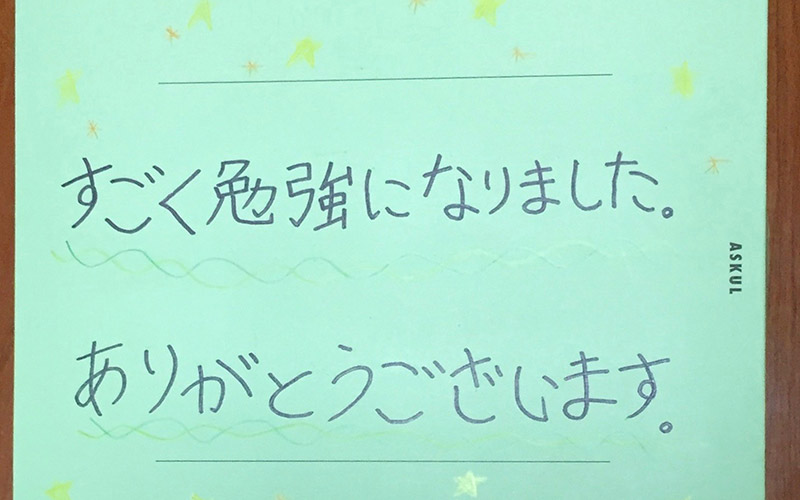 すごく勉強になりました。
ASKUL
ありがとうございます。